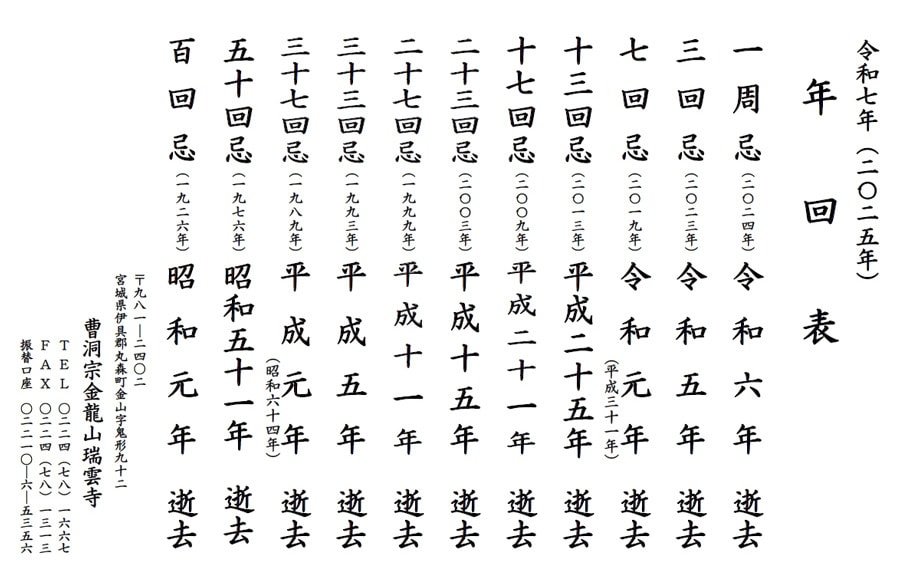 令和七年（二〇二五年）
年回表
一周忌（二〇二四年）令和六年 逝去
三回忌（二〇二三年）令和五年 逝去
七回忌（二〇一九年）令和元年（平成三十一年）逝去
十三回忌（二〇一三年）平成二十五年 逝去
十七回忌（二〇〇九年）平成二十一年 逝去
二十三回忌（二〇〇三年）平成十五年 逝去
二十七回忌（一九九九年）平成十一年 逝去
三十三回忌（一九九三年）平成五年 逝去
三十七回忌（一九八九年）平成元年（昭和六十四年）逝去
五十回忌（一九七六年）昭和五十一年 逝去
百回忌（一九二六年）昭和元年 逝去
〒九八一―二四〇二
宮城県伊具郡丸森町金山字鬼形九十二
曹洞宗金龍山瑞雲寺
ＴＥＬ 〇二二四（七八）一六六七
ＦＡＸ 〇二二四（七八）一三一三
振替口座 〇二二一〇―六―五三五六